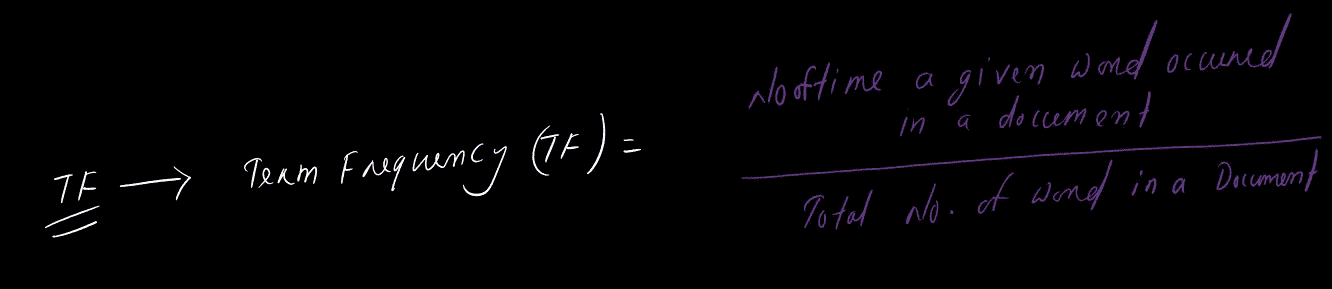 TF → Term Frequency (TF) =
No of time a given word occured
in a document
Total No. of word in a Document